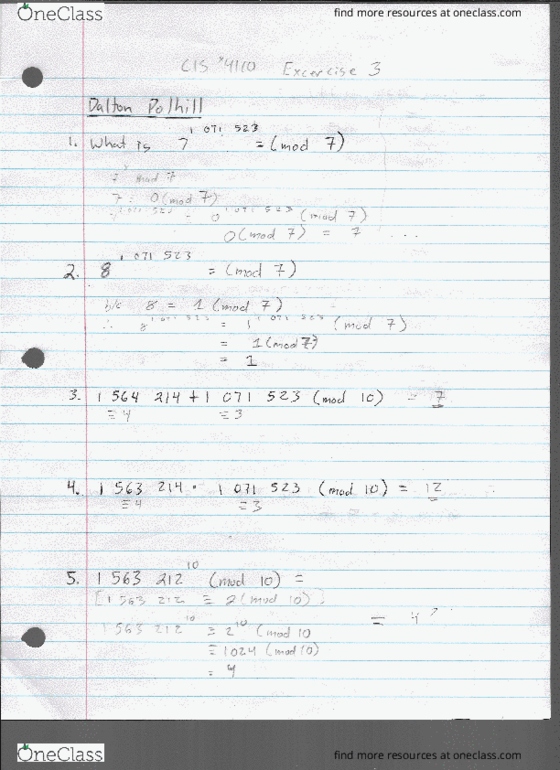 OneClass
find more resources at oneclass.com
CIS *4110 Excercise 3
Dalton Polhill
1. What is 7^1 071 523 = (mod 7)
mod 7
7 = 0(mod 7)
(mod 7)
0(mod 7) = 7
2. 8^1 071 523 = (mod 7)
b/c 8 = 1 (mod 7)
∴ 8^1 071 523 = 1^1 071 523 (mod 7)
= 1(mod 7)
= 1
3. 1 564 214 + 1 071 523 (mod 10) = 7
≡ 4 ≡ 3
4. 1 563 214 · 1 071 523 (mod 10) = 12
≡ 4 ≡ 3
5. 1 563 212^10 (mod 10) =
[1 563 212 ≡ 2(mod 10)]
= 4 ?
1 563 212^10 ≡ 2^10 (mod 10
≡ 1024 (mod 10)
= 4
OneClass
find more resources at oneclass.com